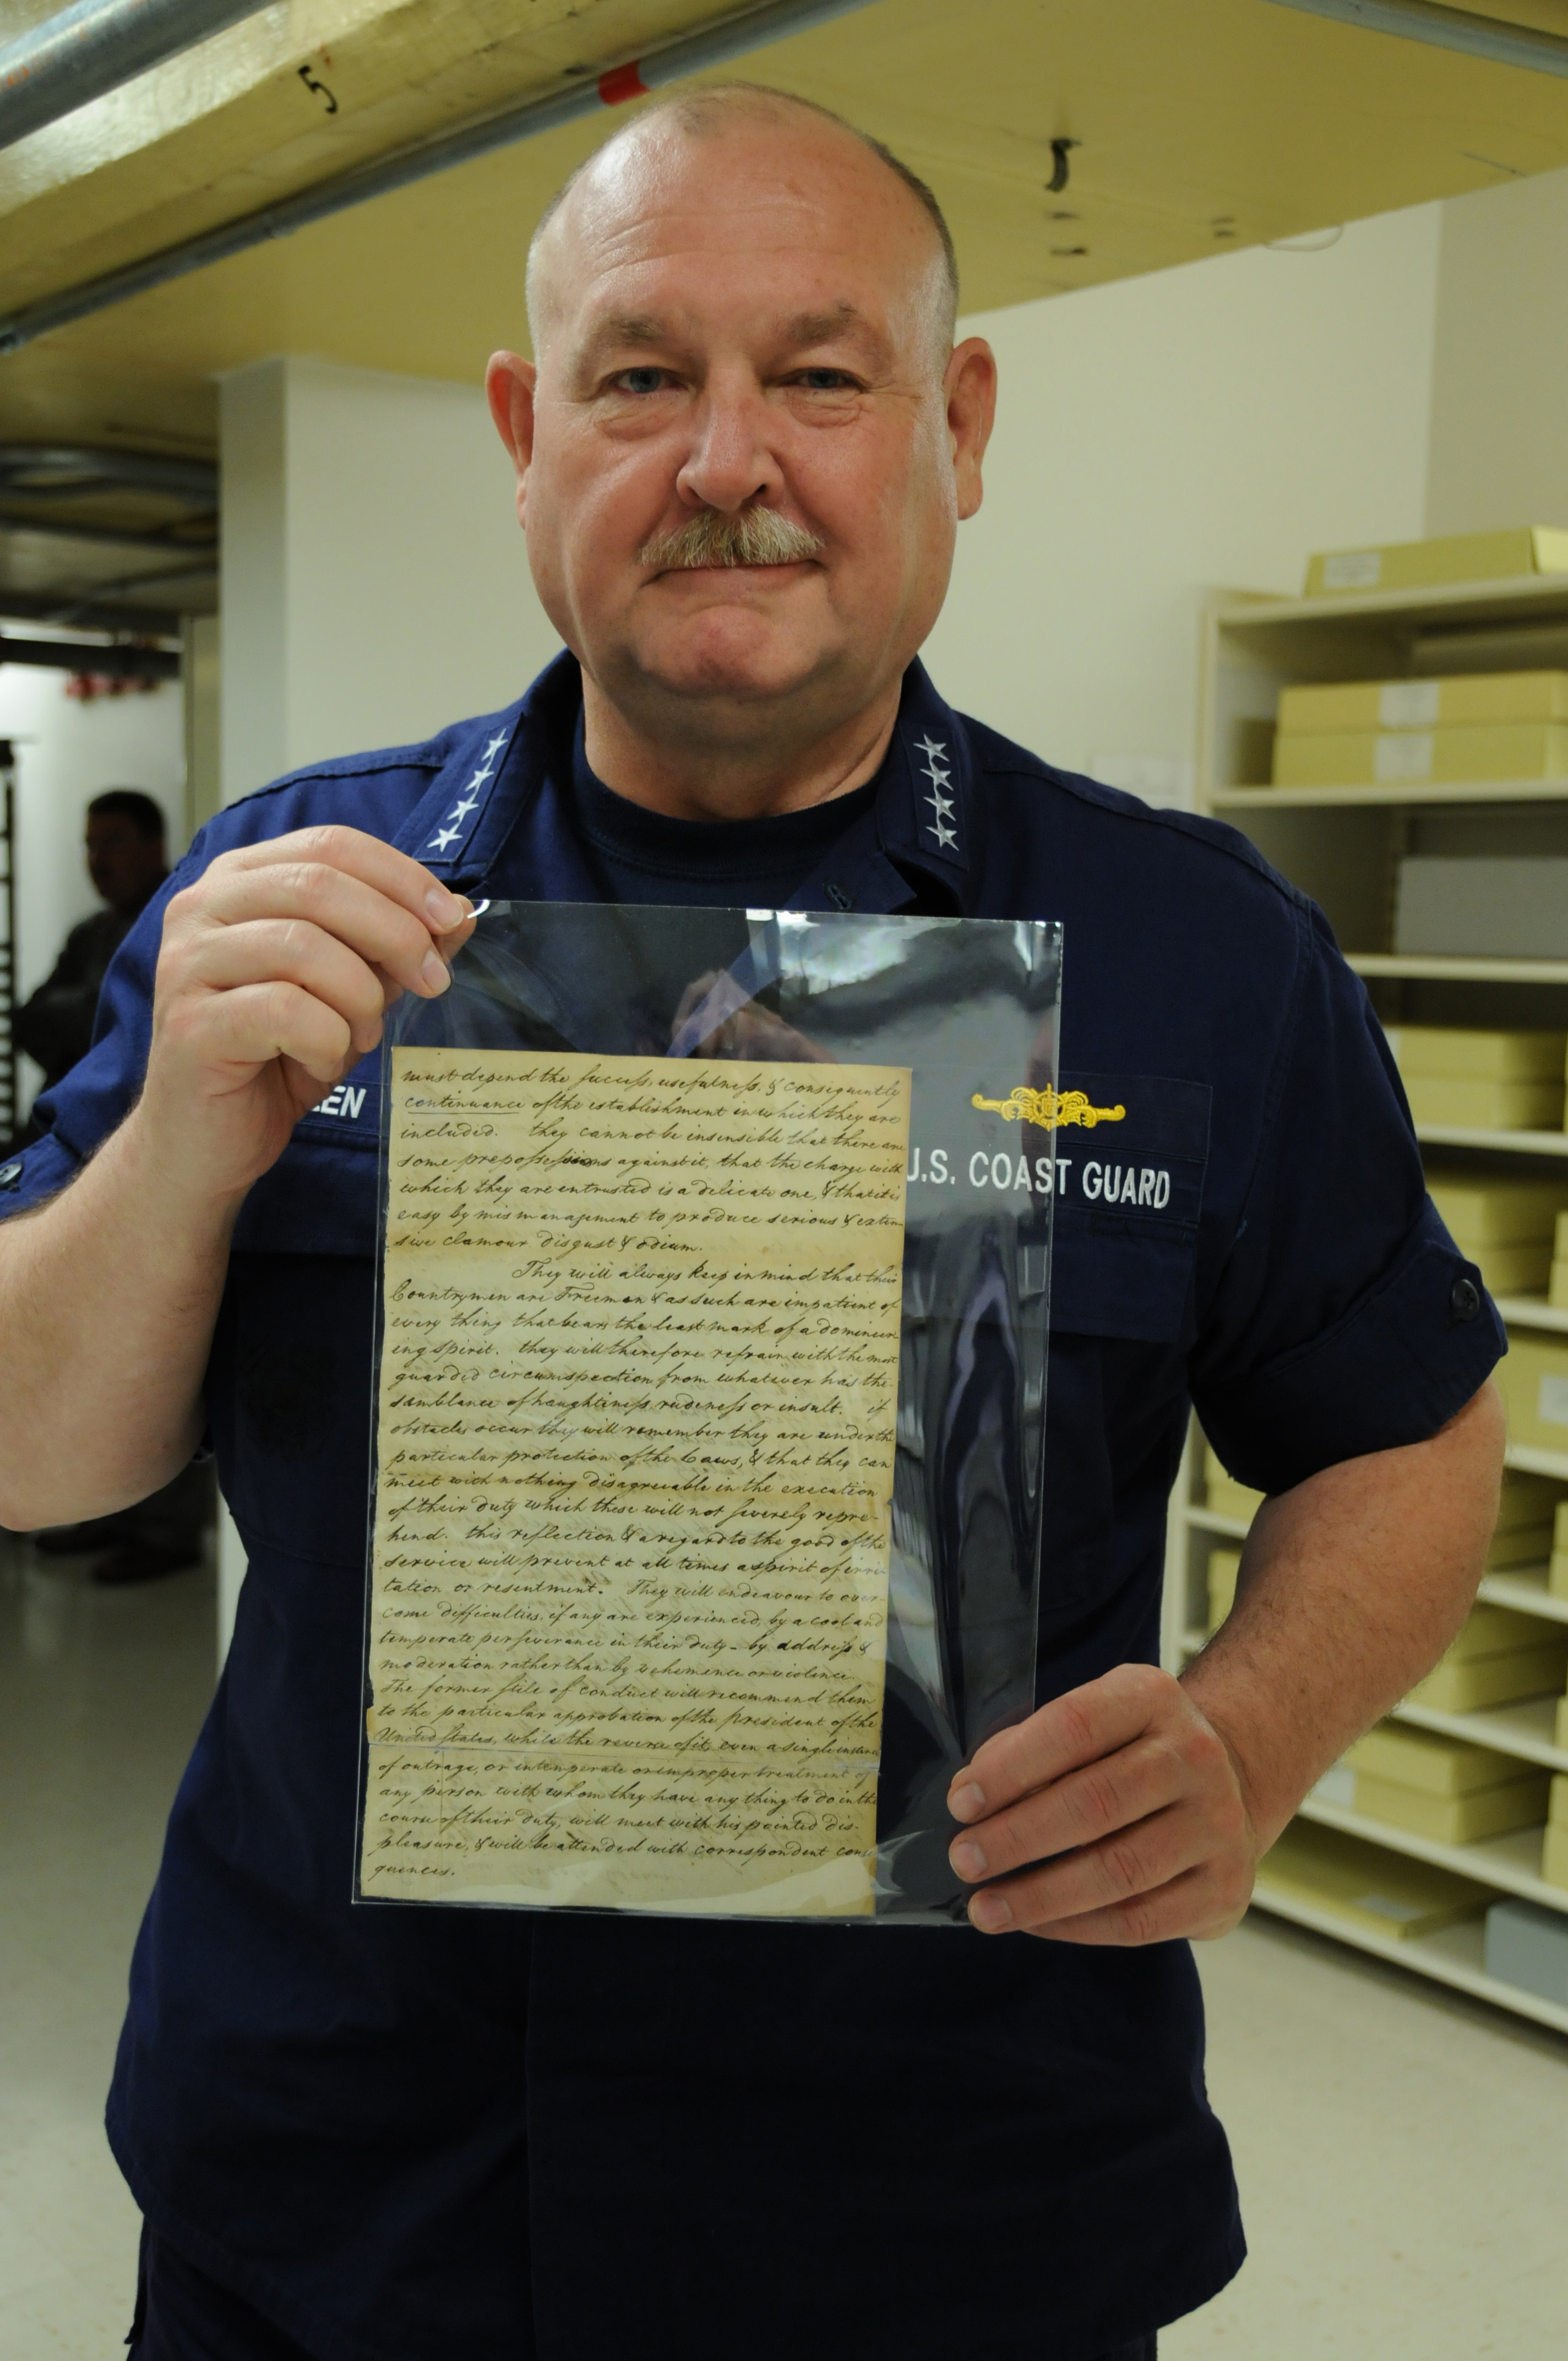 5
LEN
U.S. COAST GUARD
must depend the success, usefulness, & consequently
continuance of the establishment in which they are
included. they cannot be insensible that there are
some prepossessions against it, that the charge with
which they are entrusted is a delicate one, & that it is
easy by mismanagement to produce serious & exten-
sive clamour disgust & odium.
They will always keep in mind that their
Countrymen are Freemen & as such are impatient of
every thing that bears the least mark of a domineer
ing spirit. they will therefore refrain with the most
guarded circumspection from whatever has the
semblance of haughtiness rudeness or insult. if
obstacles occur they will remember they are under the
particular protection of the Laws, & that they can
meet with nothing disagreeable in the execution
of their duty which these will not severely repre-
hend. this reflection & a regard to the good of the
service will prevent at all times a spirit of irri-
tation or resentment. They will endeavour to over-
come difficulties, if any are experienced, by a cool and
temperate perseverance in their duty - by address &
moderation rather than by vehemence or violence.
The former stile of conduct will recommend them
to the particular approbation of the president of the
United States, while the reverse of it, even a single instance
of outrage, or intemperate or improper treatment of
any person with whom they have any thing to do in the
course of their duty, will meet with his pointed dis-
pleasure, & will be attended with correspondent conse
quences.